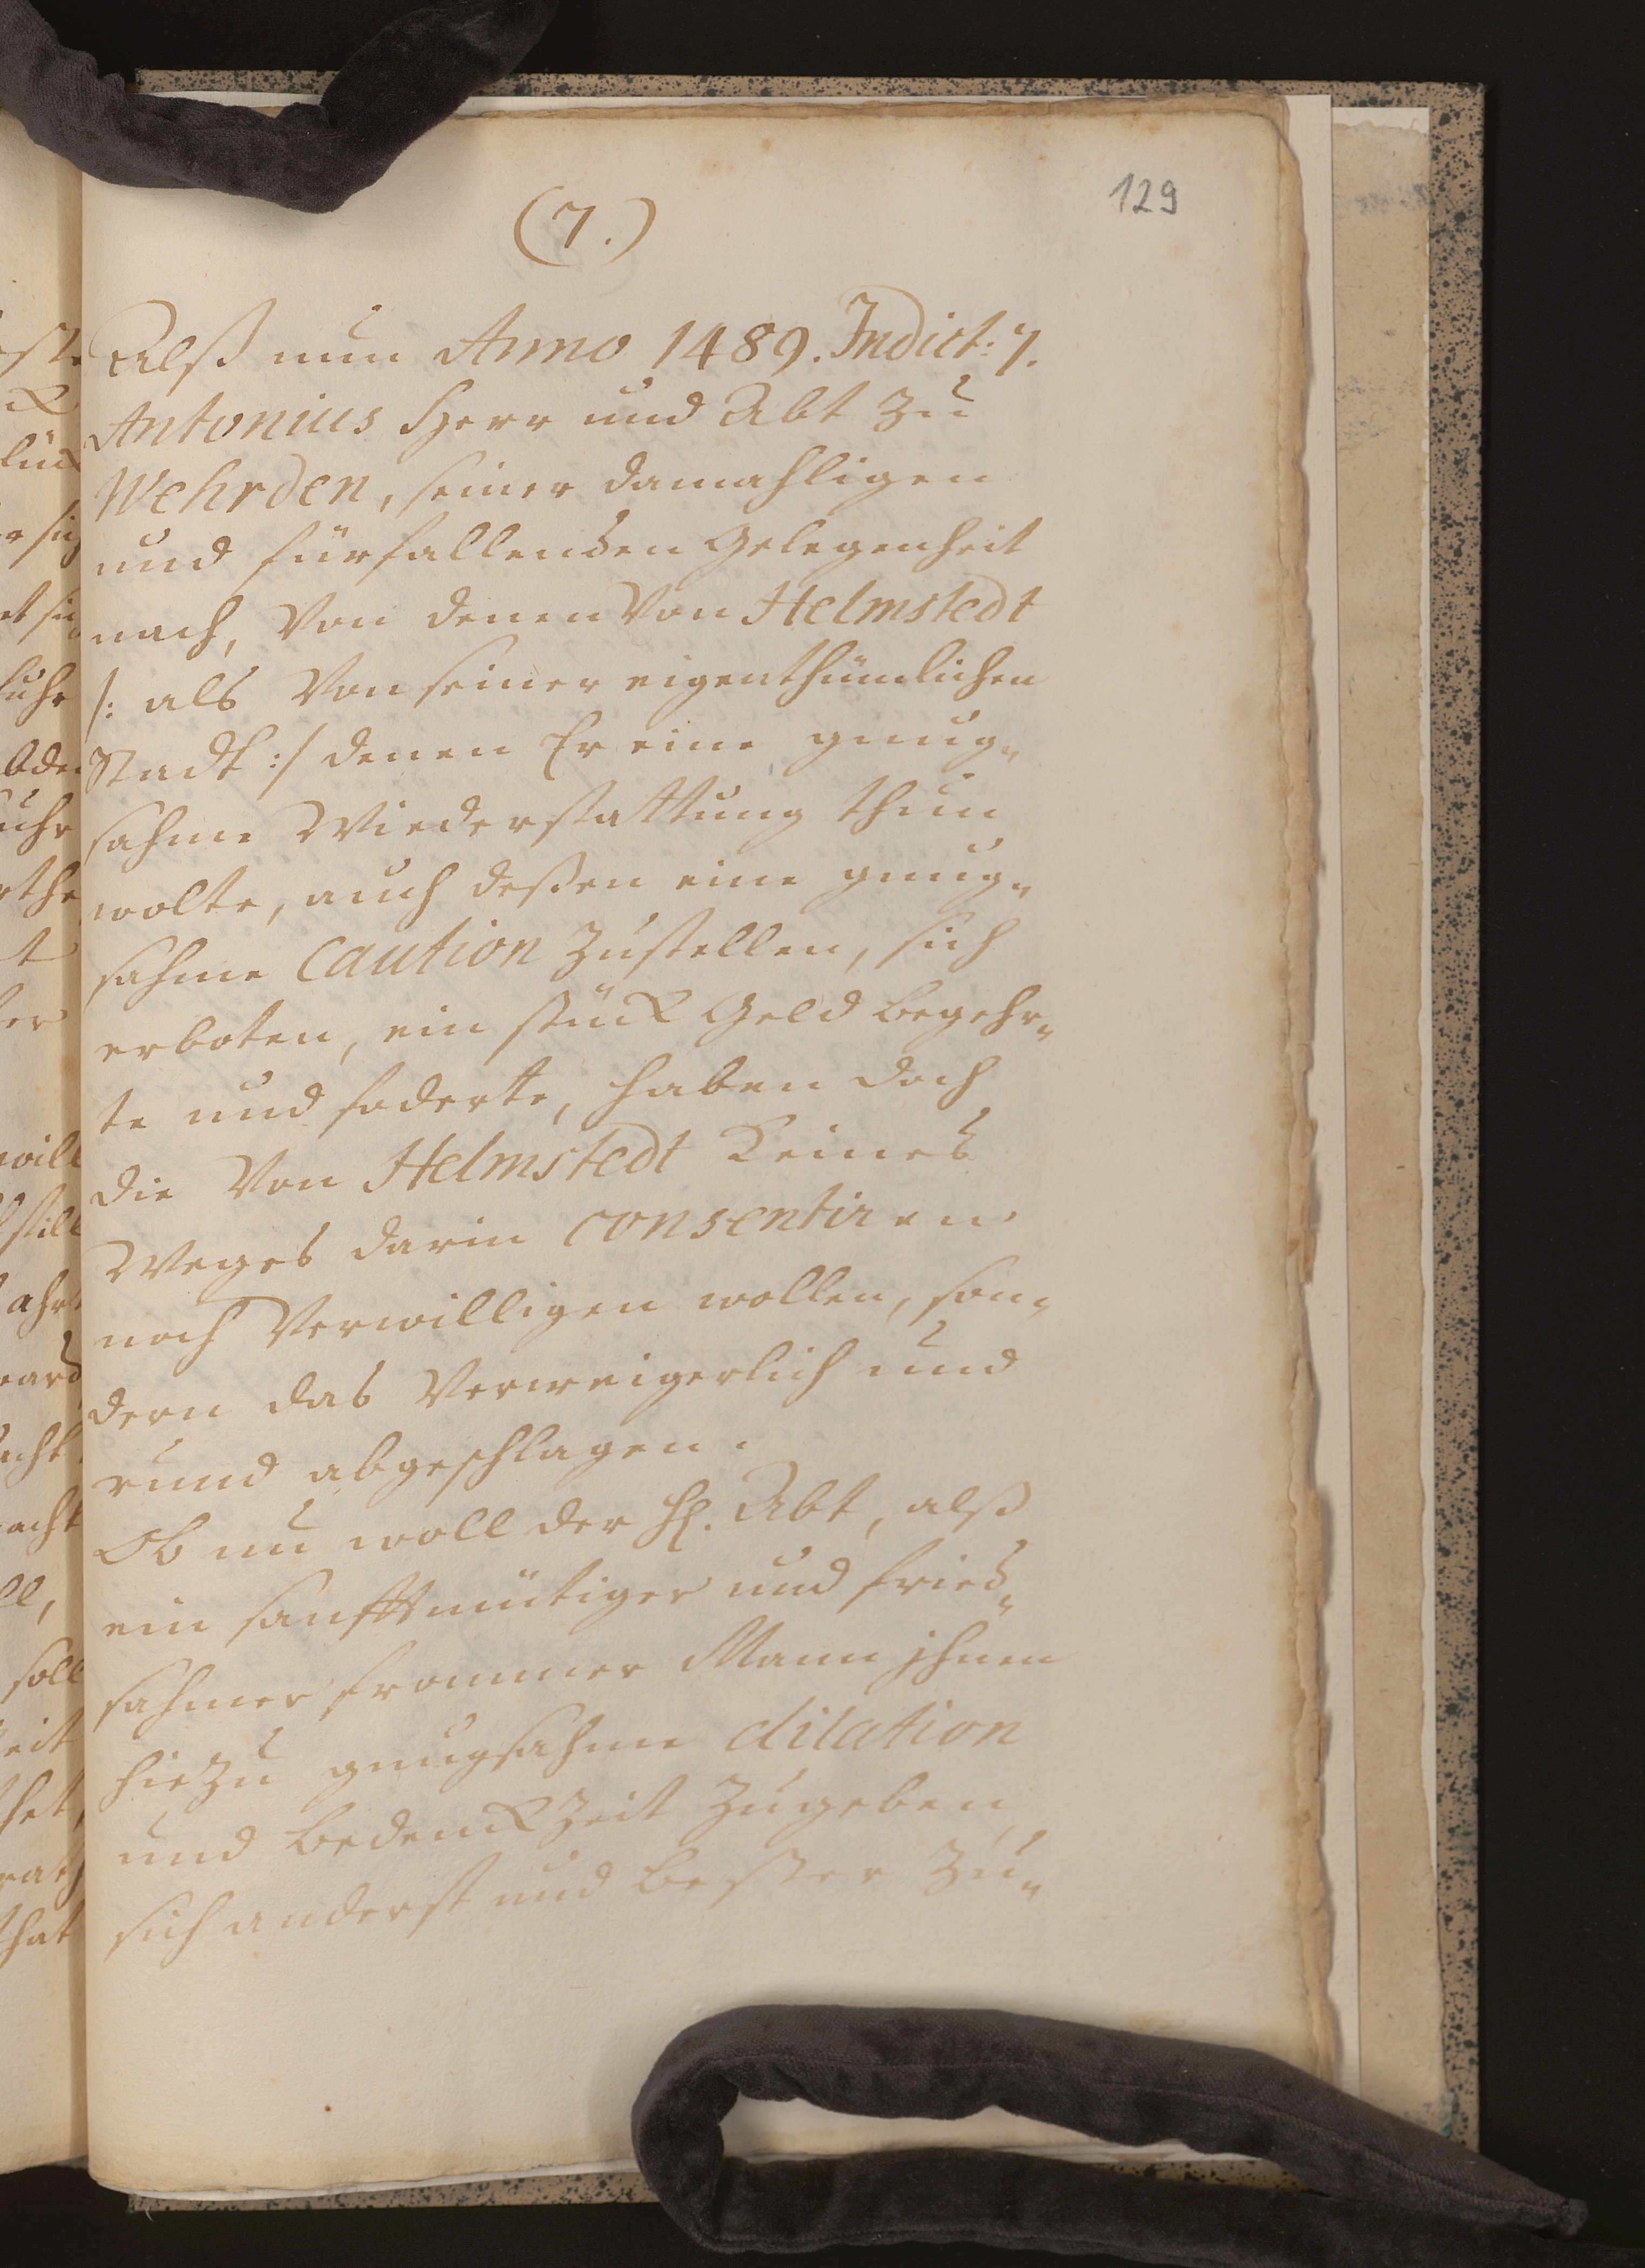 129
(7.)
Alß nun Anno 1489. Indict: 7.
Antonius Herr und Abt zu
Wehrden, seiner damahligen
und fürfallenden Gelegenheit
nach, Von denen Von Helmstedt
/: als Von seiner eigenthümlichen
Stadt :/ denen Er eine gnug„
sahme Wiederstattung thun
wolte, auch deßen eine gnug„
sahme Caution zustellen, sich
erboten, ein stück Geld begehr„
te und foderte, haben doch
die Von Helmstedt Keines
Weges darin consentiren
noch Verwilligen wollen, son„
dern das Verweigerlich und
rund abgeschlagen.
Ob nu woll der H. Abt, alß
ein sanfftmütiger und fried„
sahmer frommer Mann jhnen
hiezu gnugsahme dilation
und bedenckzeit zugeben
sich anderst und beßer zu„